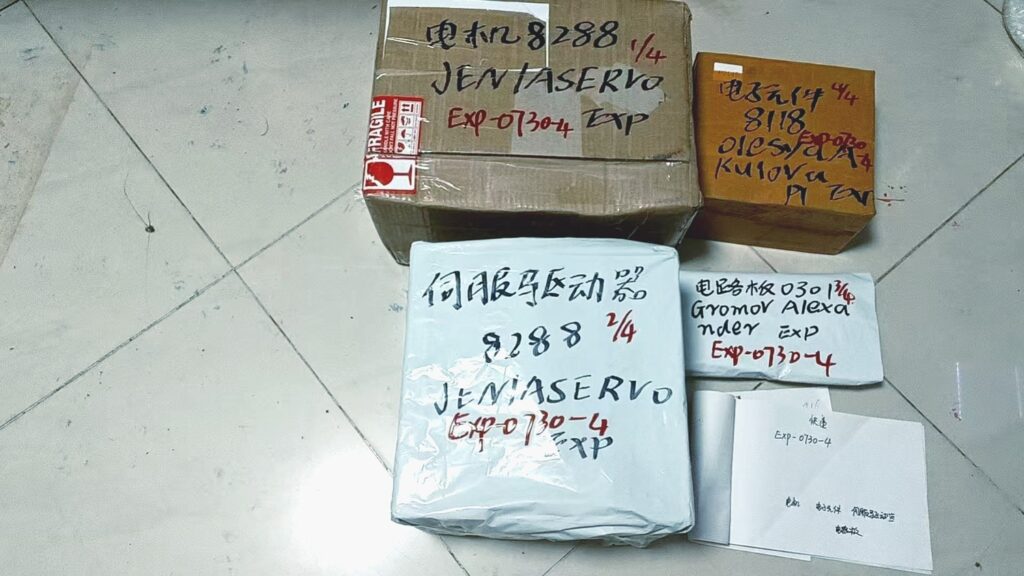 电机 8288 1/4
JENIASERVO
Exp-0730-4 Exp
FRAGILE
电子元件 4/4
8118
Exp-0730-4
olesya A
Kulova
伺服驱动器
8288 2/4
JENIASERVO
Exp-0730-4
Exp
电路板 0301 3/4
Gromov Alexa
nder Exp
Exp-0730-4
快递
Exp-0730-4
电机 电子元件 伺服驱动器
电路板